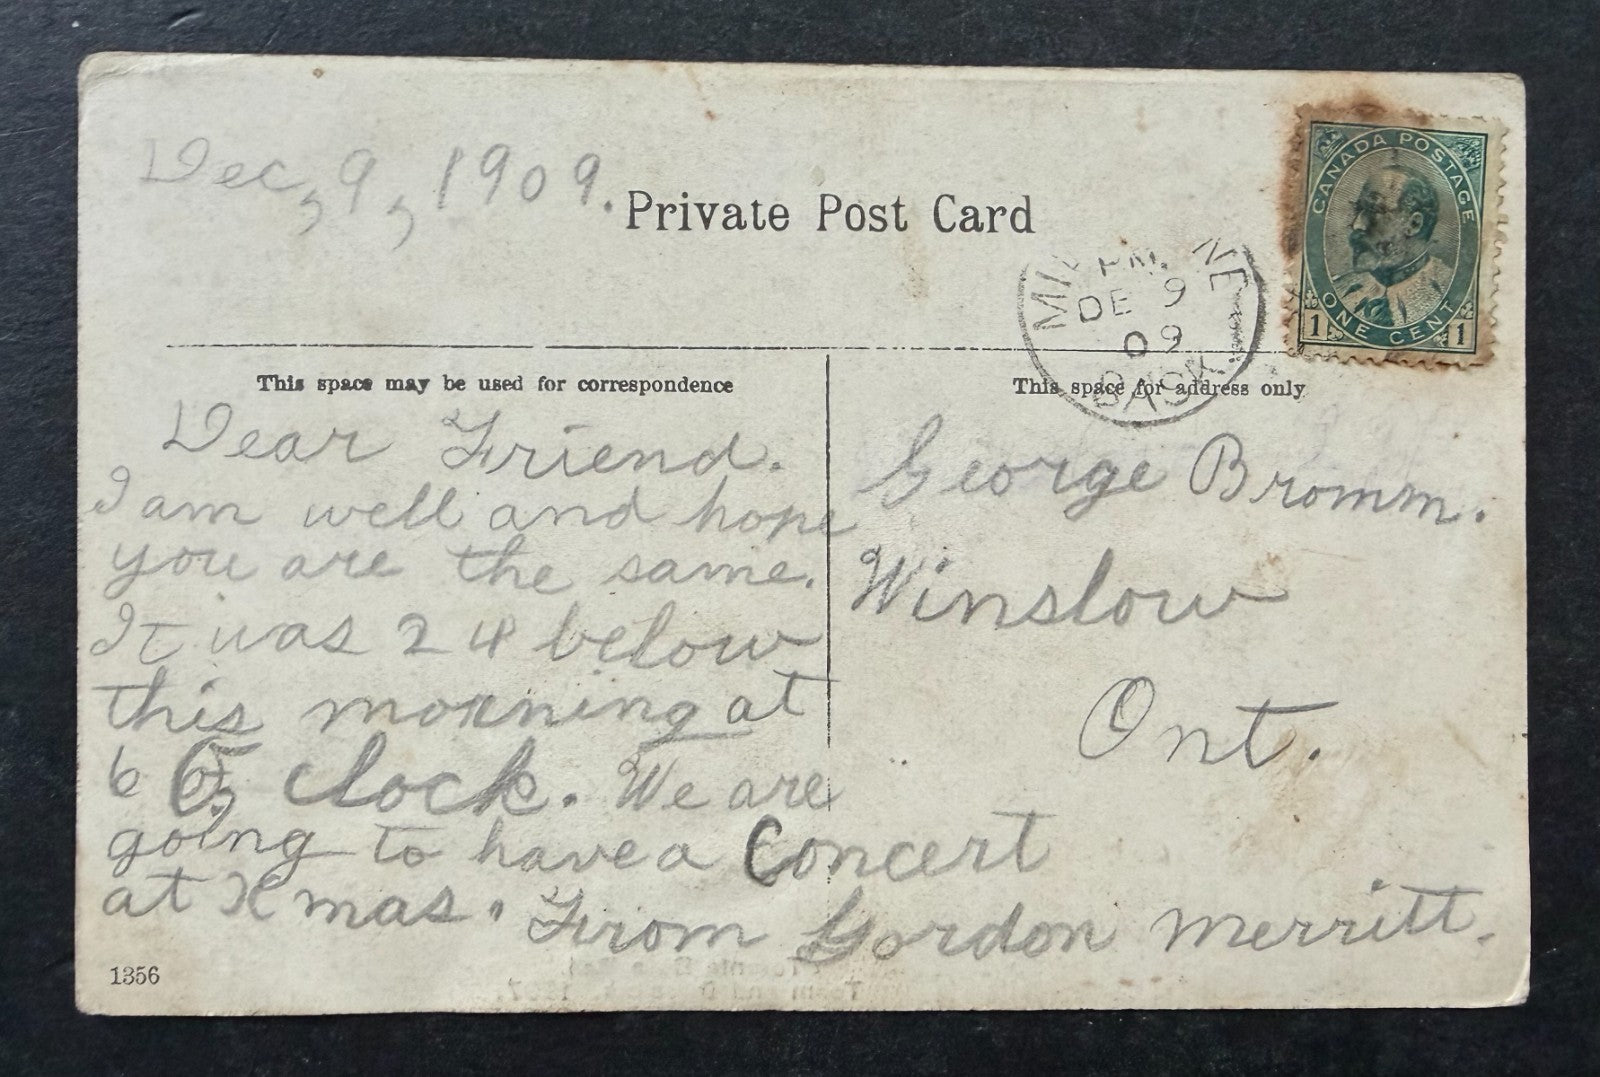 Dec, 9, 1909.
Private Post Card
CANADA POSTAGE
ONE CENT
1 1
PM
DE 9
09
SASK
This space may be used for correspondence
This space for address only
Dear Friend.
I am well and hope
you are the same.
It was 24 below
this morning at
6 O, clock. We are
going to have a Concert
at Xmas. From Gordon Merritt.
George Bromm.
Winslow
Ont.
1356